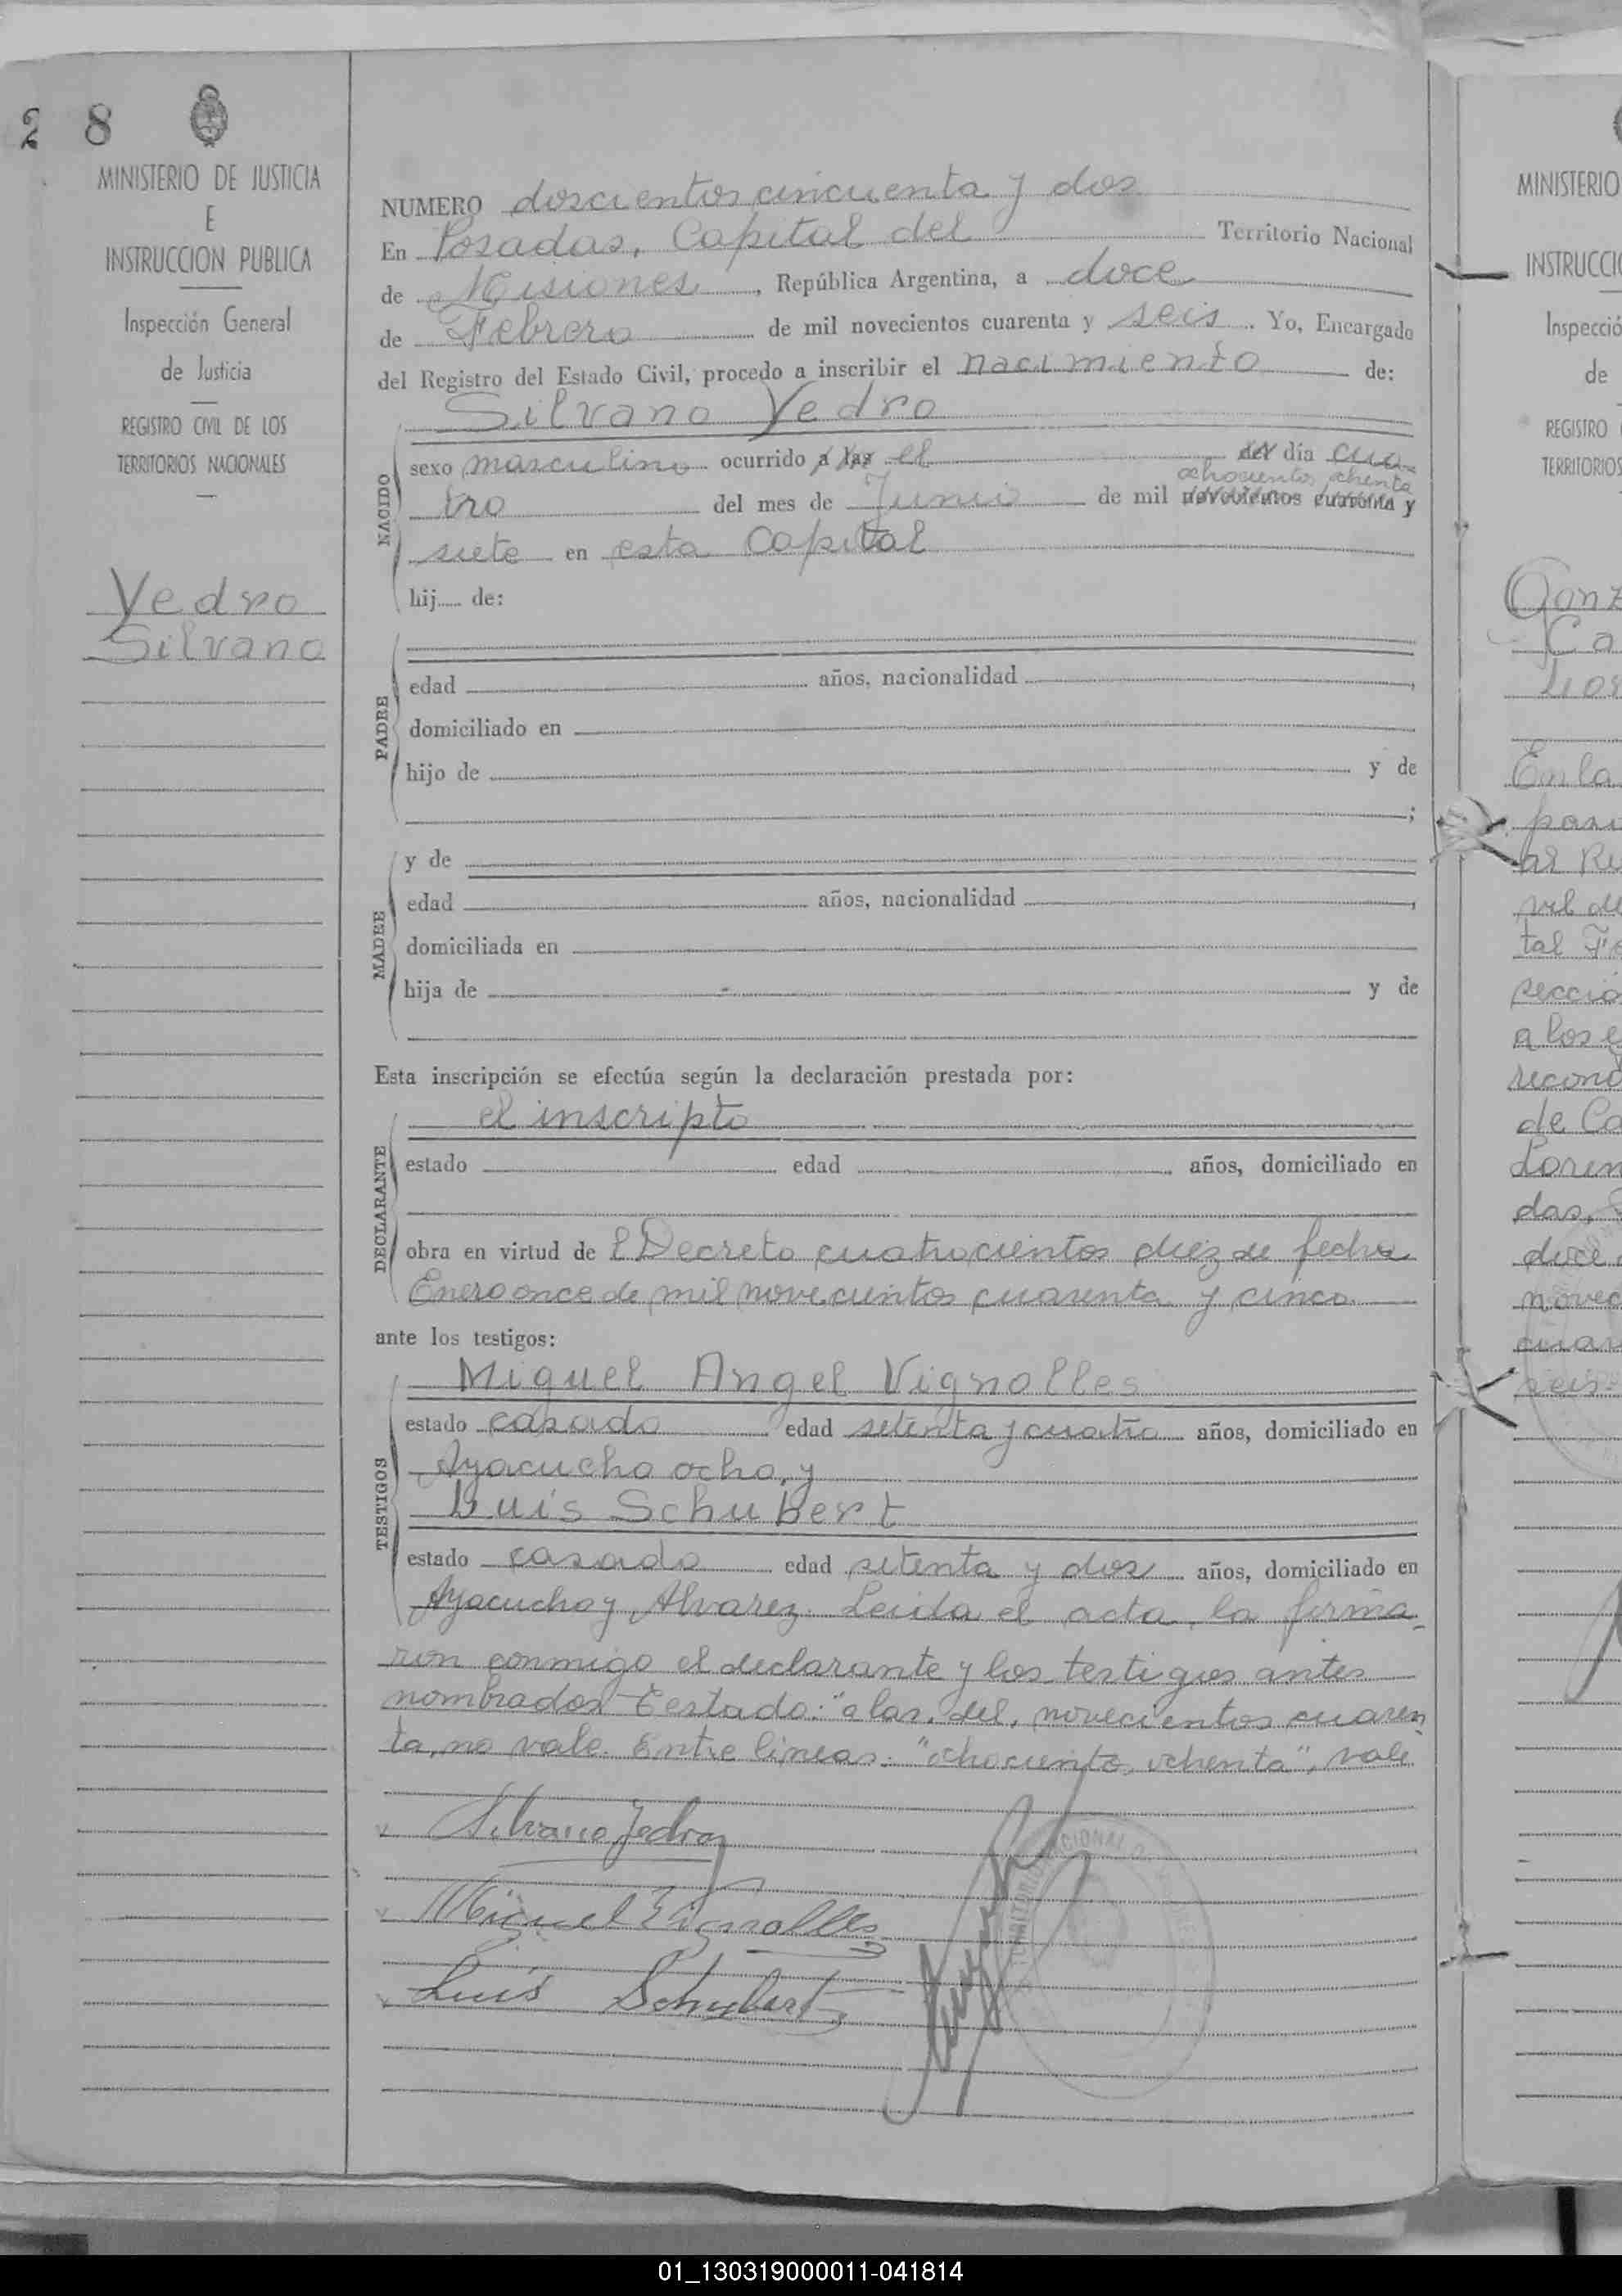 2 8
MINISTERIO DE JUSTICIA
E
INSTRUCCION PUBLICA
Inspección General
de Justicia
REGISTRO CIVIL DE LOS
TERRITORIOS NACIONALES
Yedro
Silvano
NUMERO doscientos cincuenta y dos
En Posadas, Capital del Territorio Nacional
de Misiones, República Argentina, a doce
de Febrero de mil novecientos cuarenta y seis. Yo, Encargado
del Registro del Estado Civil, procedo a inscribir el nacimiento de:
Silvano Yedro
NACIDO
sexo masculino ocurrido a las el del dia cua
ochocientos ochenta
tro del mes de Junio de mil novecientos cuarenta y
siete en esta Capital
hij de:
PADRE
edad años, nacionalidad ,
domiciliado en
hijo de y de
;
MADRE
y de
edad años, nacionalidad ,
domiciliada en
hija de y de
Esta inscripción se efectúa según la declaración prestada por:
DECLARANTE
el inscripto
estado edad años, domiciliado en
obra en virtud de l Decreto cuatrocientos diez de fecha
Enero once de mil novecientos cuarenta y cinco
ante los testigos:
TESTIGOS
Miguel Angel Vignolles
estado casado edad setenta y cuatro años, domiciliado en
Ayacucho ocho, y
Luis Schubert
estado casado edad setenta y dos años, domiciliado en
Ayacucho y Alvarez. Leida el acta, la firma-
ron conmigo el declarante y los testigos antes
nombrados. Testado: "a las, del, novecientos cuaren
ta, no vale. Entre lineas: "ochociento, ochenta", vale
Silvano Yedro
Miguel Vignolles
Luis Schubert
MINISTERIO
INSTRUCCI
Inspecció
de
REGISTRO
TERRITORIOS
En la
tal
a los
de
doce
01_130319000011-041814